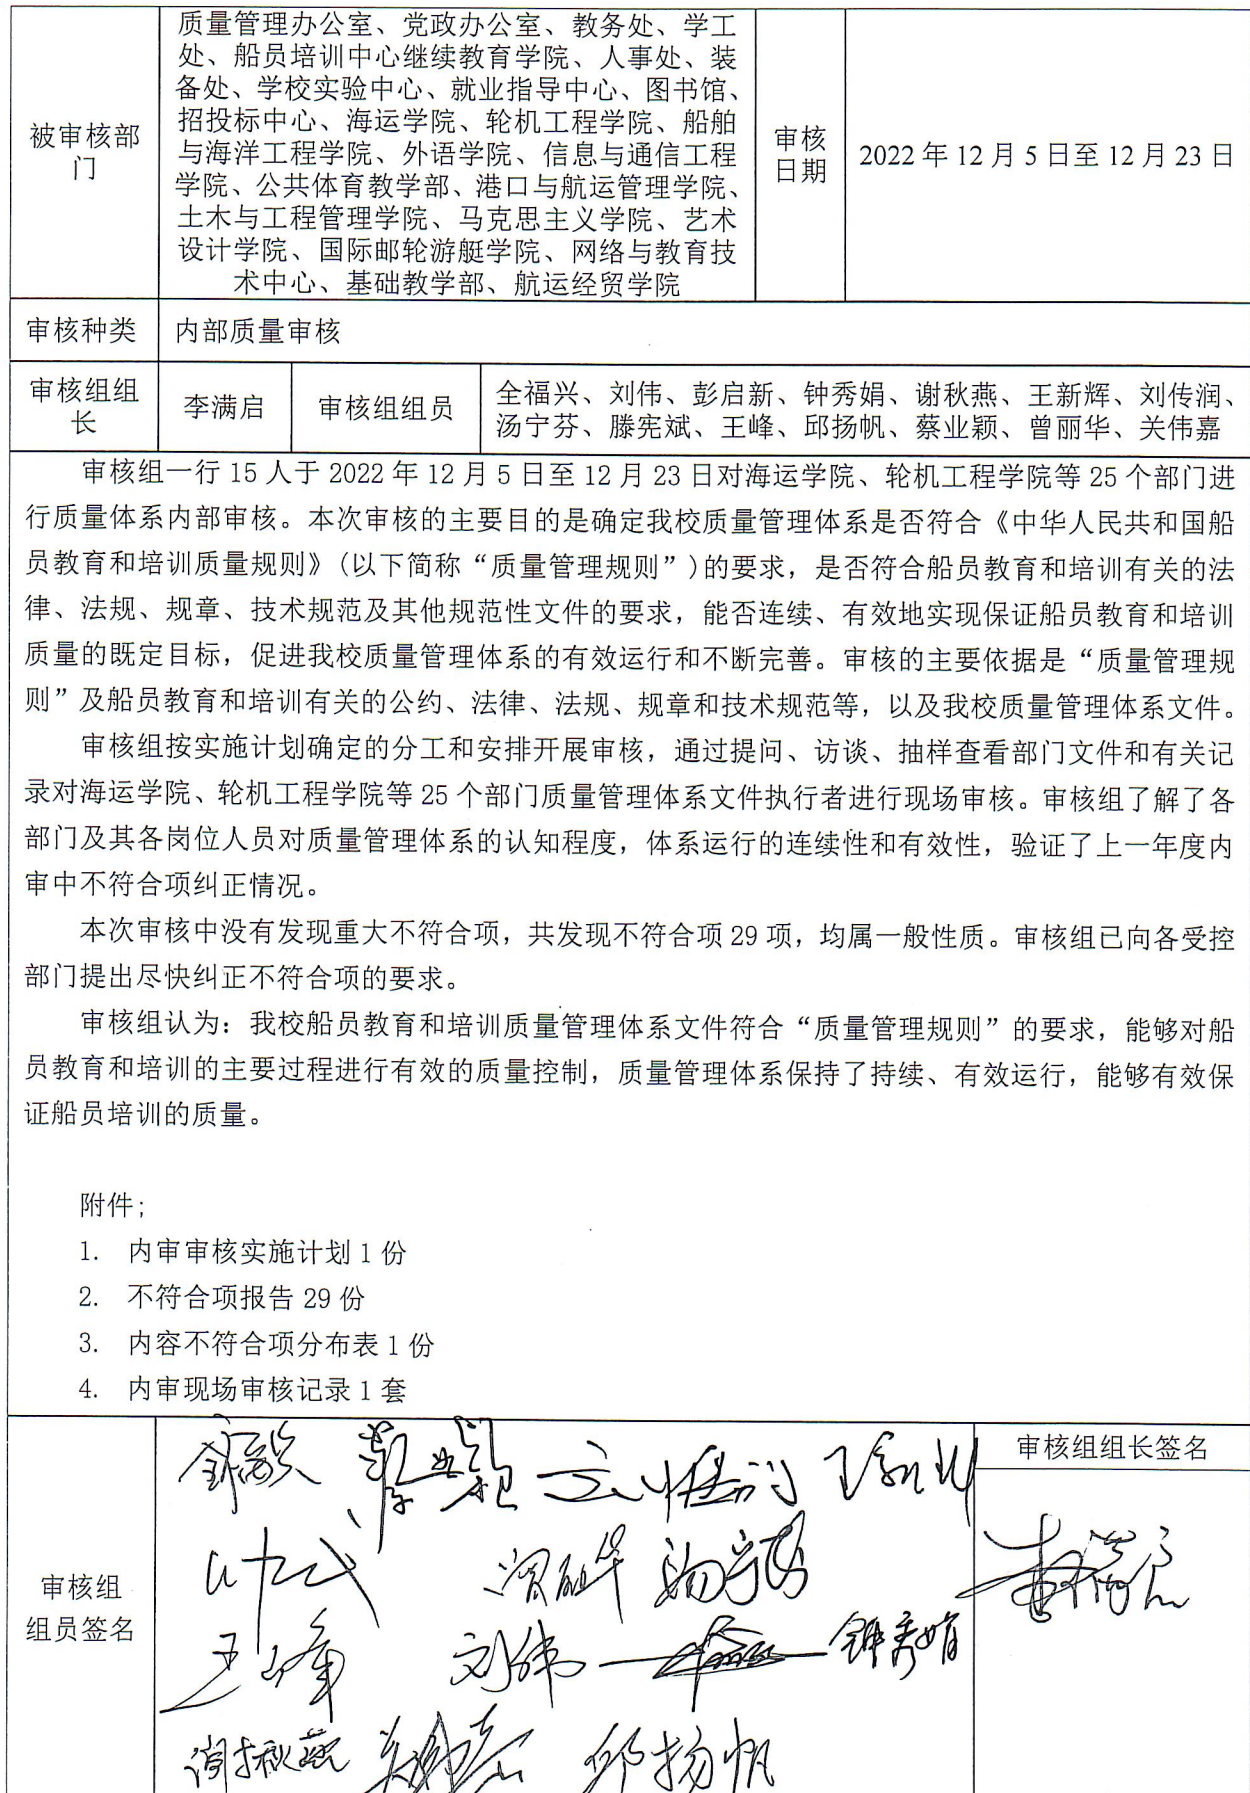 被审核部
门
质量管理办公室、党政办公室、教务处、学工
处、船员培训中心继续教育学院、人事处、装
备处、学校实验中心、就业指导中心、图书馆、
招投标中心、海运学院、轮机工程学院、船舶
与海洋工程学院、外语学院、信息与通信工程
学院、公共体育教学部、港口与航运管理学院、
土木与工程管理学院、马克思主义学院、艺术
设计学院、国际邮轮游艇学院、网络与教育技
术中心、基础教学部、航运经贸学院
审核
日期
2022 年 12 月 5 日至 12 月 23 日
审核种类
内部质量审核
审核组组
长
李满启
审核组组员
全福兴、刘伟、彭启新、钟秀娟、谢秋燕、王新辉、刘传润、
汤宁芬、滕宪斌、王峰、邱扬帆、蔡业颖、曾丽华、关伟嘉
审核组一行 15 人于 2022 年 12 月 5 日至 12 月 23 日对海运学院、轮机工程学院等 25 个部门进
行质量体系内部审核。本次审核的主要目的是确定我校质量管理体系是否符合《中华人民共和国船
员教育和培训质量规则》(以下简称“质量管理规则”)的要求，是否符合船员教育和培训有关的法
律、法规、规章、技术规范及其他规范性文件的要求，能否连续、有效地实现保证船员教育和培训
质量的既定目标，促进我校质量管理体系的有效运行和不断完善。审核的主要依据是“质量管理规
则”及船员教育和培训有关的公约、法律、法规、规章和技术规范等，以及我校质量管理体系文件。
审核组按实施计划确定的分工和安排开展审核，通过提问、访谈、抽样查看部门文件和有关记
录对海运学院、轮机工程学院等 25 个部门质量管理体系文件执行者进行现场审核。审核组了解了各
部门及其各岗位人员对质量管理体系的认知程度，体系运行的连续性和有效性，验证了上一年度内
审中不符合项纠正情况。
本次审核中没有发现重大不符合项，共发现不符合项 29 项，均属一般性质。审核组已向各受控
部门提出尽快纠正不符合项的要求。
审核组认为：我校船员教育和培训质量管理体系文件符合“质量管理规则”的要求，能够对船
员教育和培训的主要过程进行有效的质量控制，质量管理体系保持了持续、有效运行，能够有效保
证船员培训的质量。
附件;
1. 内审审核实施计划 1 份
2. 不符合项报告 29 份
3. 内容不符合项分布表 1 份
4. 内审现场审核记录 1 套
审核组
组员签名
蔡业颖
曾丽华 汤宁芬
王峰 刘伟 钟秀娟
谢秋燕 关伟嘉 邱扬帆
审核组组长签名
李满启